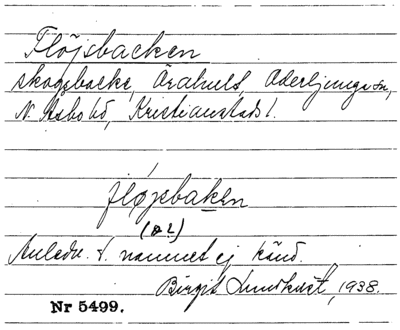 Flöjsbacken
skogsbacke, Örahult, Oderljunga sn,
N. Åsbo hd, Kristianstads l.
fløjsbaken
(a2)
Anledn. t. namnet ej känd.
Birgit Lundkvist, 1938.
Nr 5499.